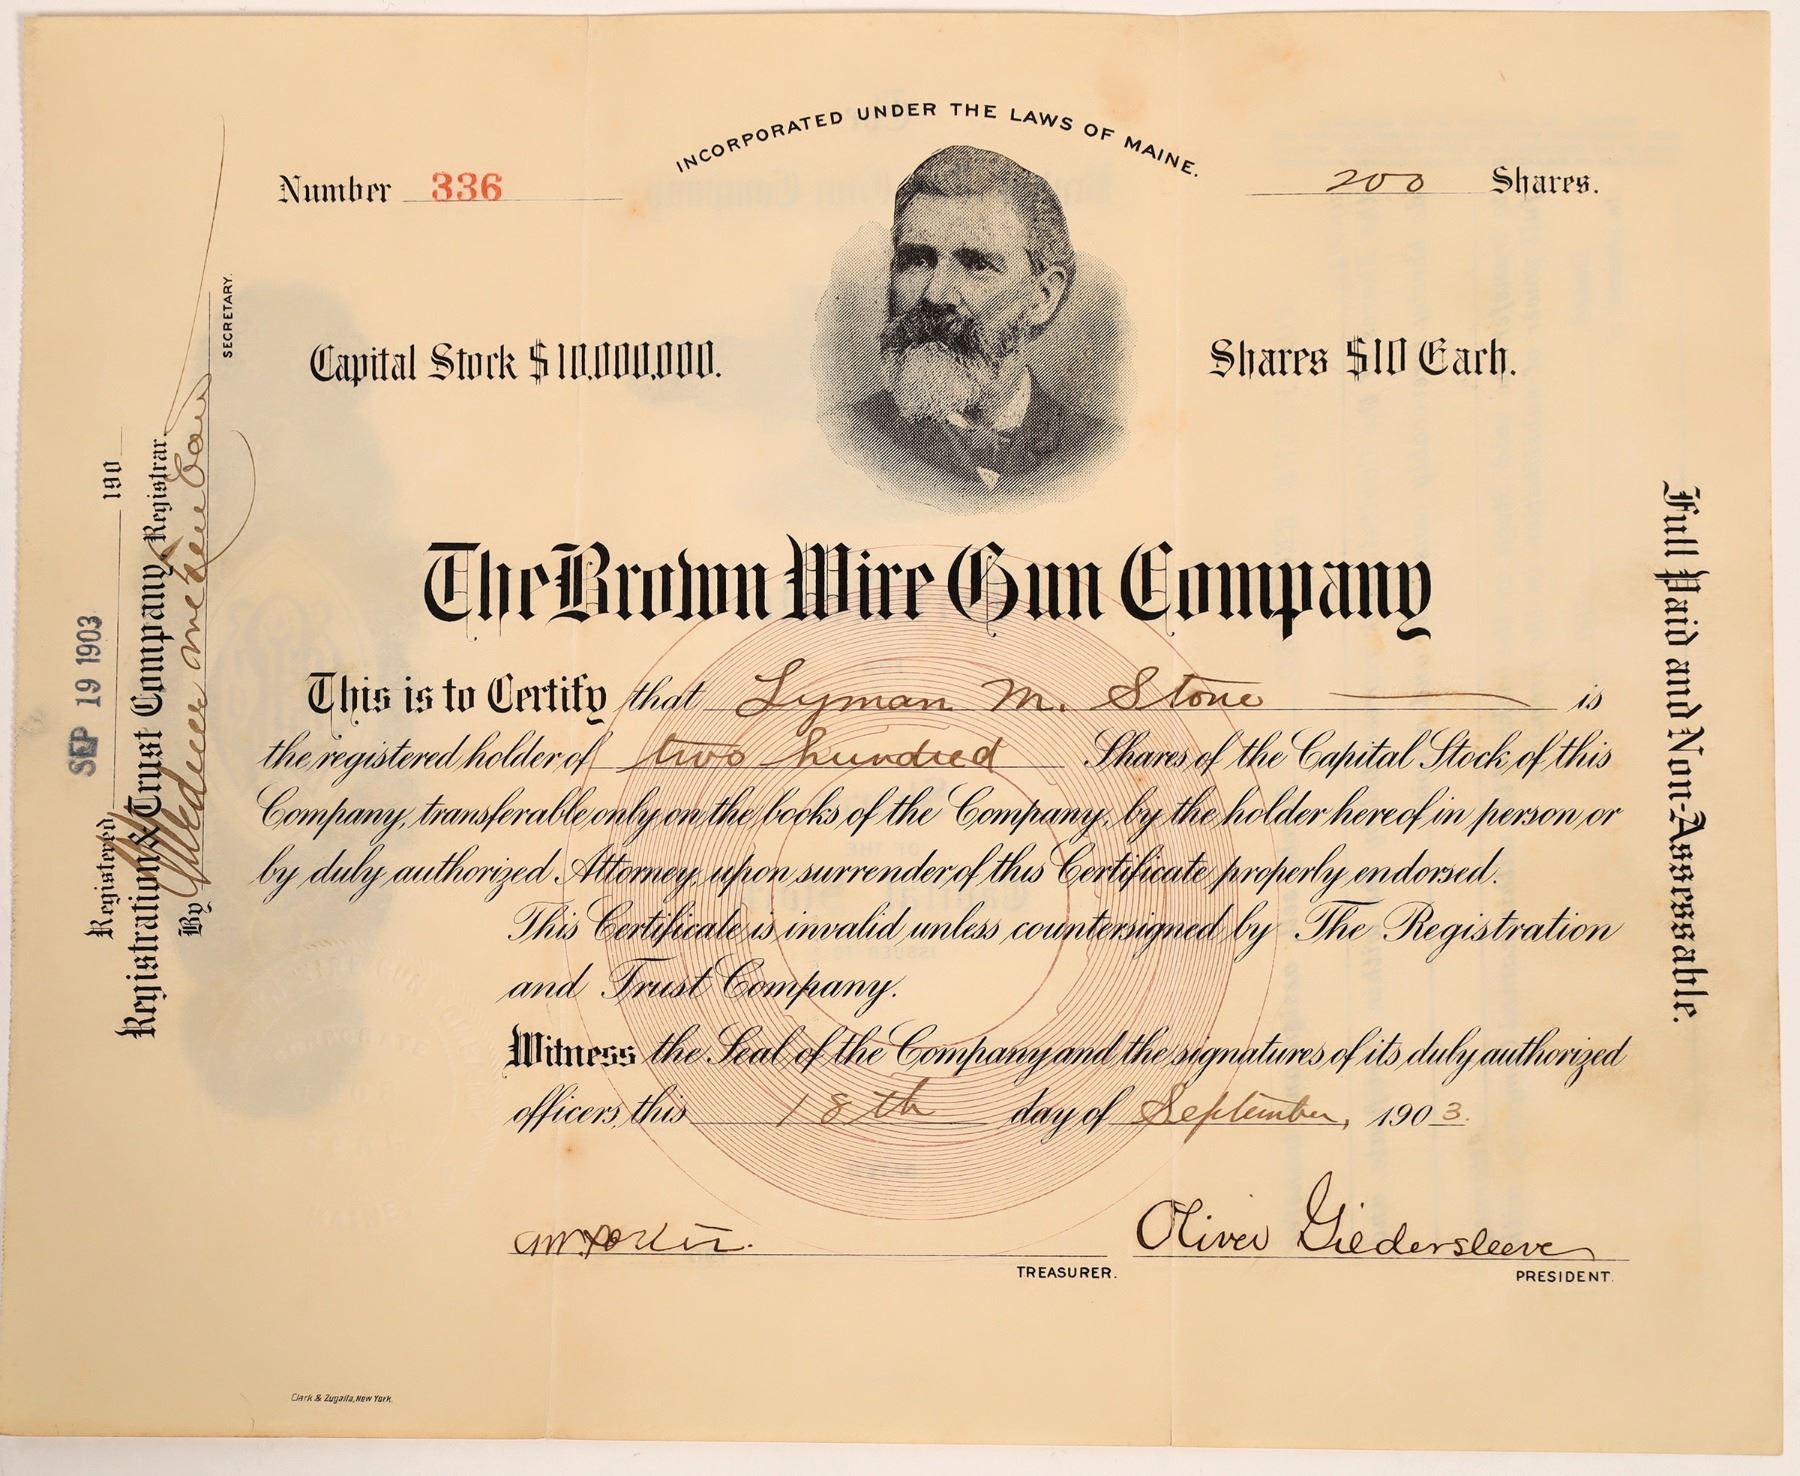 INCORPORATED UNDER THE LAWS OF MAINE.
Number 336
200 Shares.
Capital Stock $10,000,000.
Shares $10 Each.
The Brown Wire Gun Company
This is to Certify that Lyman M. Stone is
the registered holder of two hundred Shares of the Capital Stock of this
Company, transferable only on the books of the Company, by the holder hereof in person or
by duly authorized Attorney, upon surrender of this Certificate properly endorsed.
This Certificate is invalid unless countersigned by The Registration
and Trust Company.
Witness the Seal of the Company and the signatures of its duly authorized
officers, this 18th day of September, 1903.
Oliver Gildersleeve
TREASURER.
PRESIDENT.
Clark & Zugalla, New York.
Registered 190
SEP 19 1903
Registration & Trust Company, Registrar.
By
SECRETARY.
Full Paid and Non-Assessable.